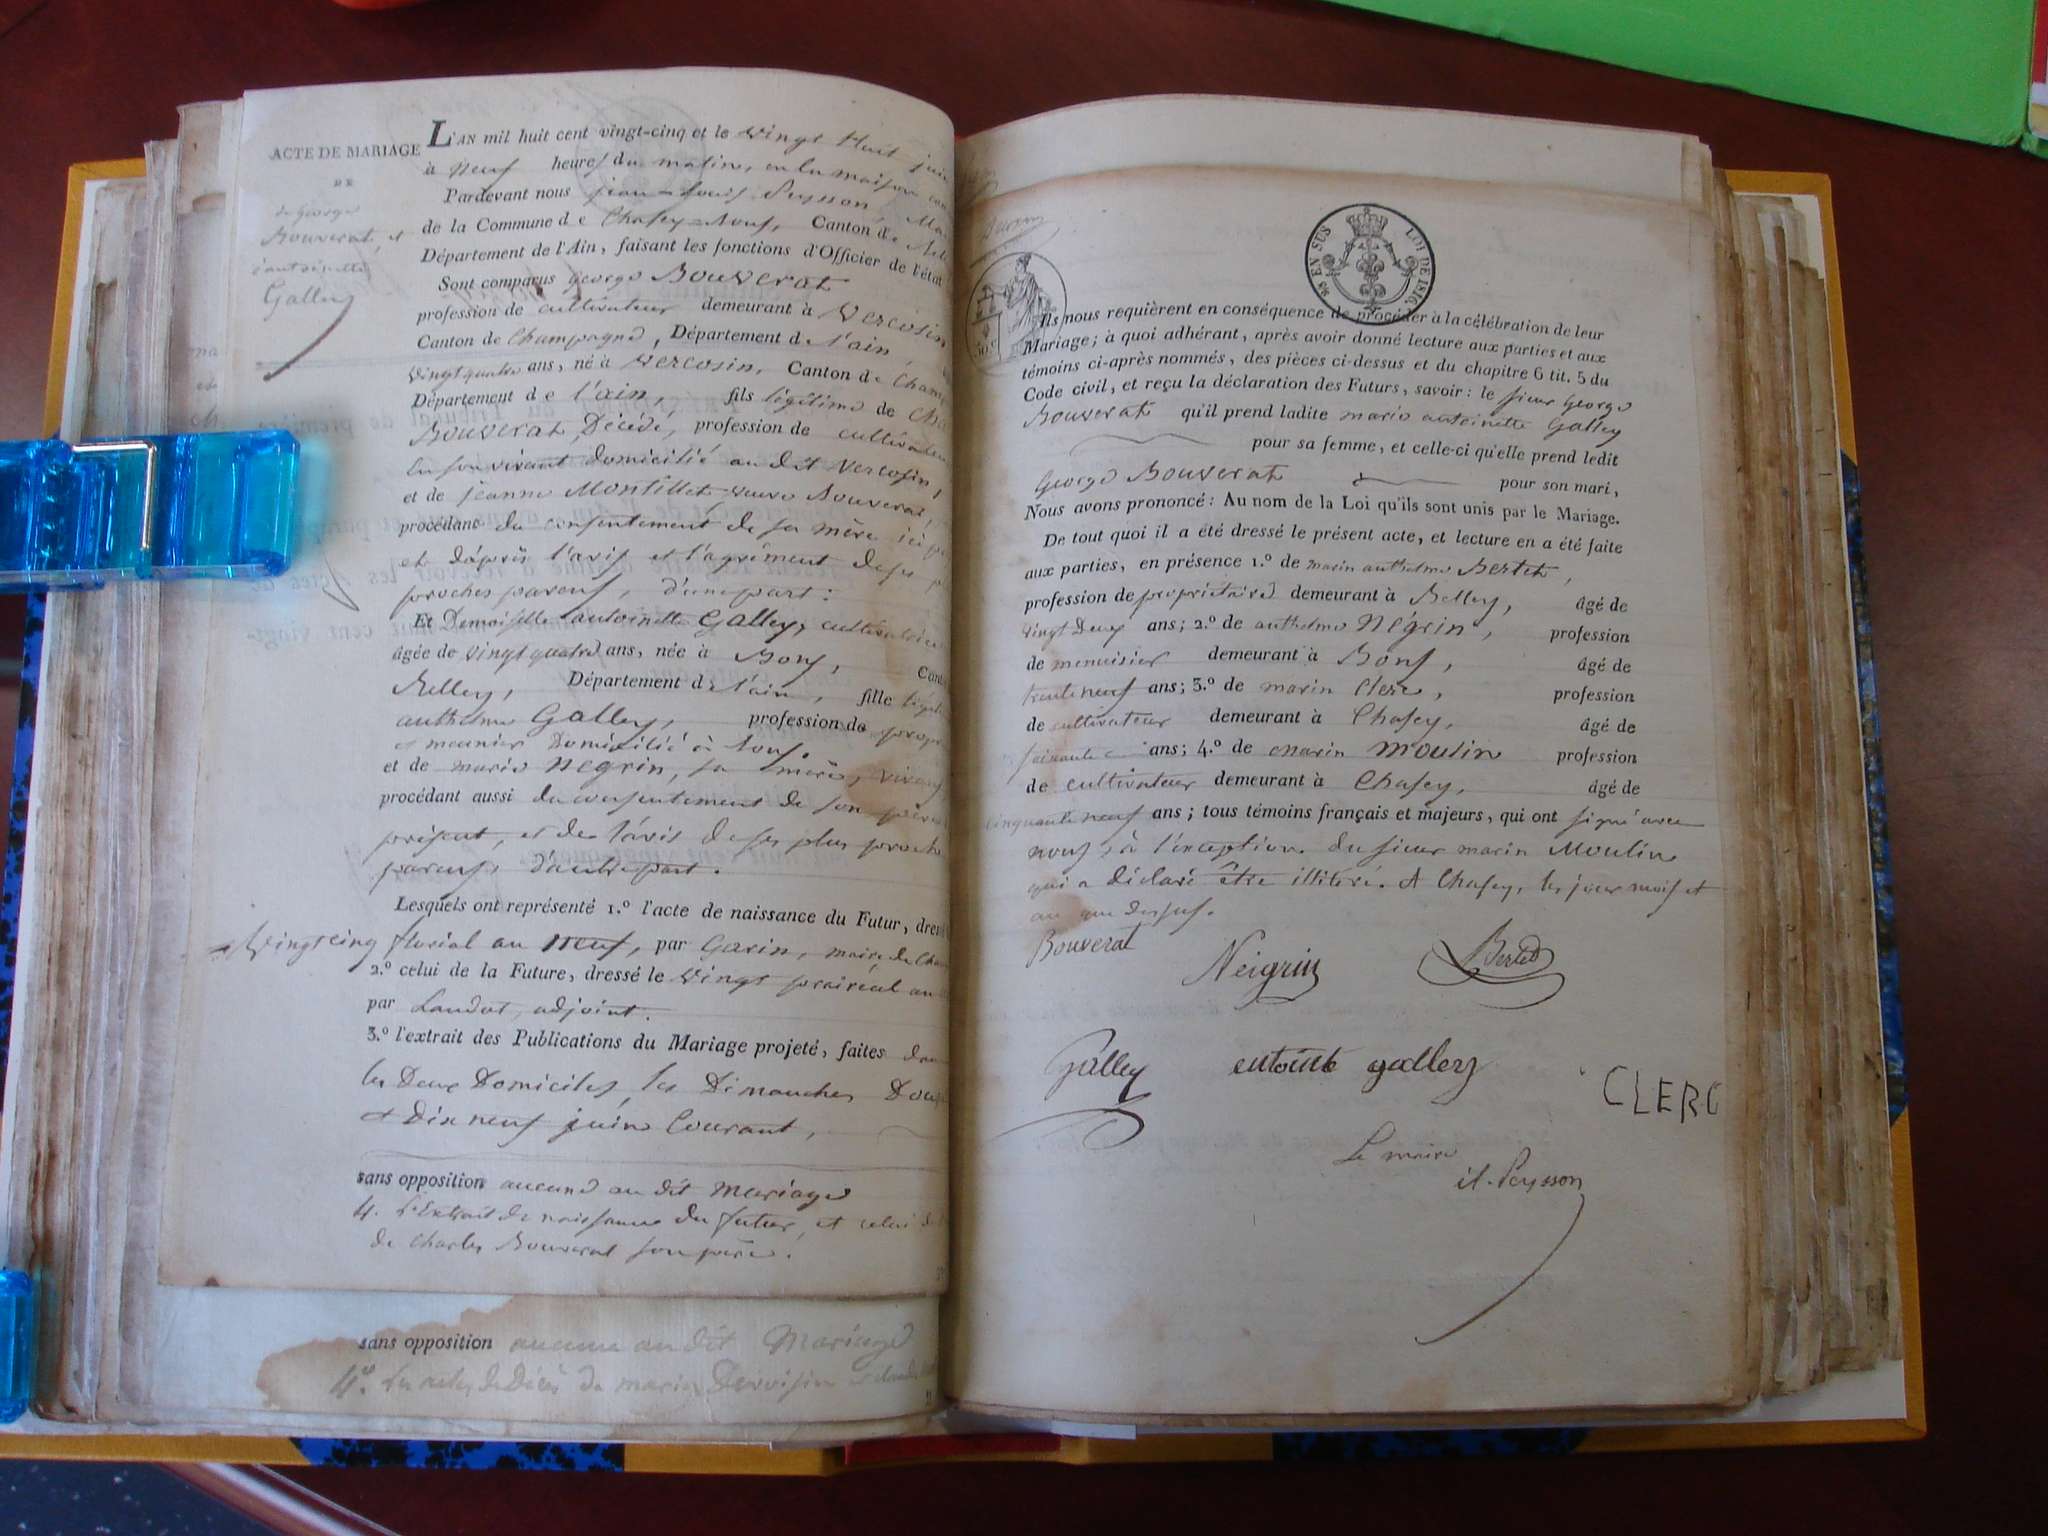 ACTE DE MARIAGE
DE
de George
Bouverat, et
d'antoinette
Galley
L'AN mil huit cent vingt-cinq et le vingt Huit juin
à Neuf heures du matin, en la maison
Pardevant nous jean-Louis Peysson,
de la Commune de Chasey-Bons, Canton de
Département de l'Ain, faisant les fonctions d'Officier de l'état
Sont comparus George Bouverat
profession de cultivateur demeurant à Vercosin
Canton de Champagne, Département de l'ain
vingt quatre ans, né à Vercosin, Canton de
Département de l'ain, fils légitime de
Bouverat Décédé, profession de cultivateur
En son vivant domicilié au dit Vercosin,
et de jeanne Montillet veuve Bouverat,
procédant du consentement de sa mère ici
et d'après l'avis et l'agrément de ses
proches parens, d'une part:
Et Demoiselle antoinette Galley, cultivatrice
âgée de vingt quatre ans, née à Bons,
Belley, Département de l'ain, fille
anthelme Galley, profession de
et meunier Domicilié à Bons.
et de marie Negrin, sa mère,
procédant aussi du consentement de son père
présent, et de l'avis de ses plus proches
parens, d'autre part.
Lesquels ont représenté 1.º l'acte de naissance du Futur,
vingt cinq floréal an neuf, par Garin, maire de
2.º celui de la Future, dressé le vingt prairéal an
par Landot, adjoint.
3.º l'extrait des Publications du Mariage projeté, faites dans
les Deux Domiciles, les Dimanches Douze
et Dix neuf juin Courant,
sans opposition aucune au dit Mariage
4. l'Extrait de naissance du futur, et celui
de Charles Bouverat son père.
sans opposition aucune au dit Mariage
4.º Les actes de Décès de marie
EN SUS
LOI DE 1816.
Ils nous requièrent en conséquence de procéder à la célébration de leur
Mariage; à quoi adhérant, après avoir donné lecture aux parties et aux
témoins ci-après nommés, des pièces ci-dessus et du chapitre 6 tit. 5 du
Code civil, et reçu la déclaration des Futurs, savoir: le sieur George
Bouverat qu'il prend ladite marie antoinette Galley
pour sa femme, et celle-ci qu'elle prend ledit
George Bouverat pour son mari,
Nous avons prononcé: Au nom de la Loi qu'ils sont unis par le Mariage.
De tout quoi il a été dressé le présent acte, et lecture en a été faite
aux parties, en présence 1.º de marin anthelme Bertet,
profession de propriétaire demeurant à Belley, âgé de
vingt Deux ans; 2.º de anthelme Négrin, profession
de menuisier demeurant à Bons, âgé de
trente neuf ans; 3.º de marin Clerc, profession
de cultivateur demeurant à Chasey, âgé de
soixante ans; 4.º de marin Moulin profession
de cultivateur demeurant à Chasey, âgé de
cinquante neuf ans; tous témoins français et majeurs, qui ont signé avec
nous, à l'exception du sieur marin Moulin
qui a déclaré être illitéré. A Chasey, les jour mois et
an que dessus.
Bouverat
Neigrin
Bertet
Galley
entointe galley
CLERC
Le maire
Peysson